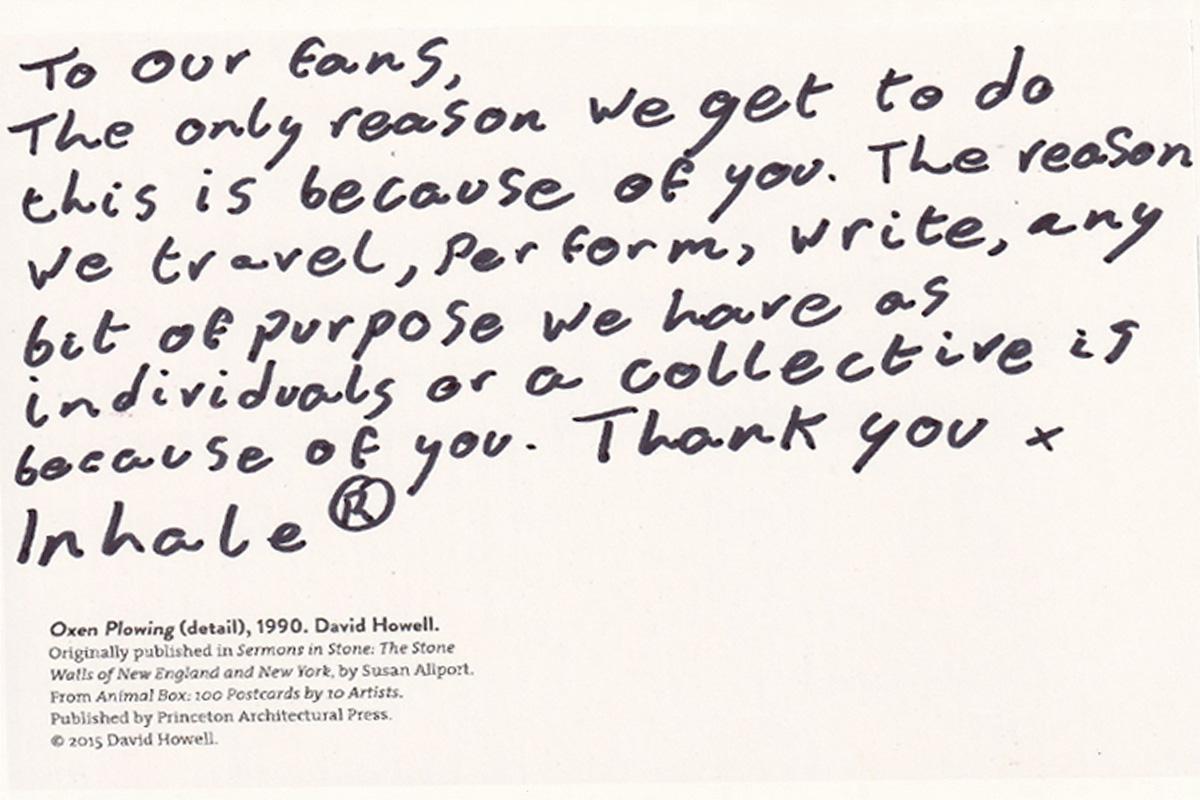 To our fans,
The only reason we get to do
this is because of you. The reason
we travel, perform, write, any
bit of purpose we have as
individuals or a collective is
because of you. Thank you x
Inhale ®
Oxen Plowing (detail), 1990. David Howell.
Originally published in Sermons in Stone: The Stone
Walls of New England and New York, by Susan Allport.
From Animal Box: 100 Postcards by 10 Artists.
Published by Princeton Architectural Press.
© 2015 David Howell.